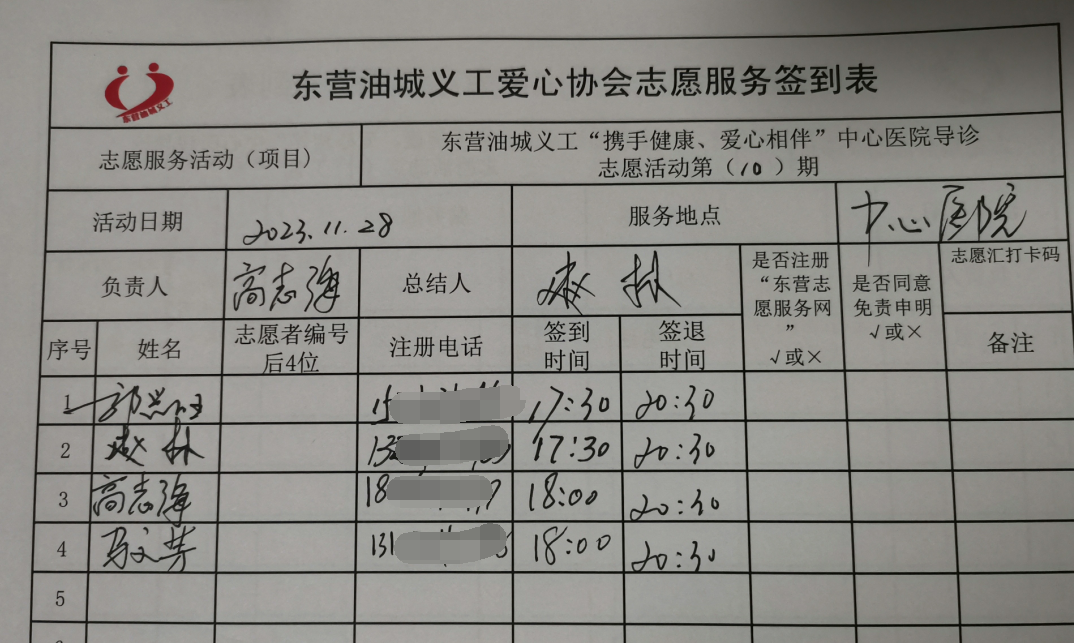 东营油城义工
东营油城义工爱心协会志愿服务签到表
志愿服务活动（项目）
东营油城义工“携手健康、爱心相伴”中心医院导诊
志愿活动第（10）期
活动日期
2023.11.28
服务地点
中心医院
负责人
高志强
总结人
赵林
是否注册
“东营志
愿服务网
”
√或×
是否同意
免责申明
√或×
志愿汇打卡码
序号
姓名
志愿者编号
后4位
注册电话
签到
时间
签退
时间
备注
1
17:30
20:30
2
赵林
17:30
20:30
3
高志强
18
18:00
20:30
4
马文芳
131
18:00
20:30
5